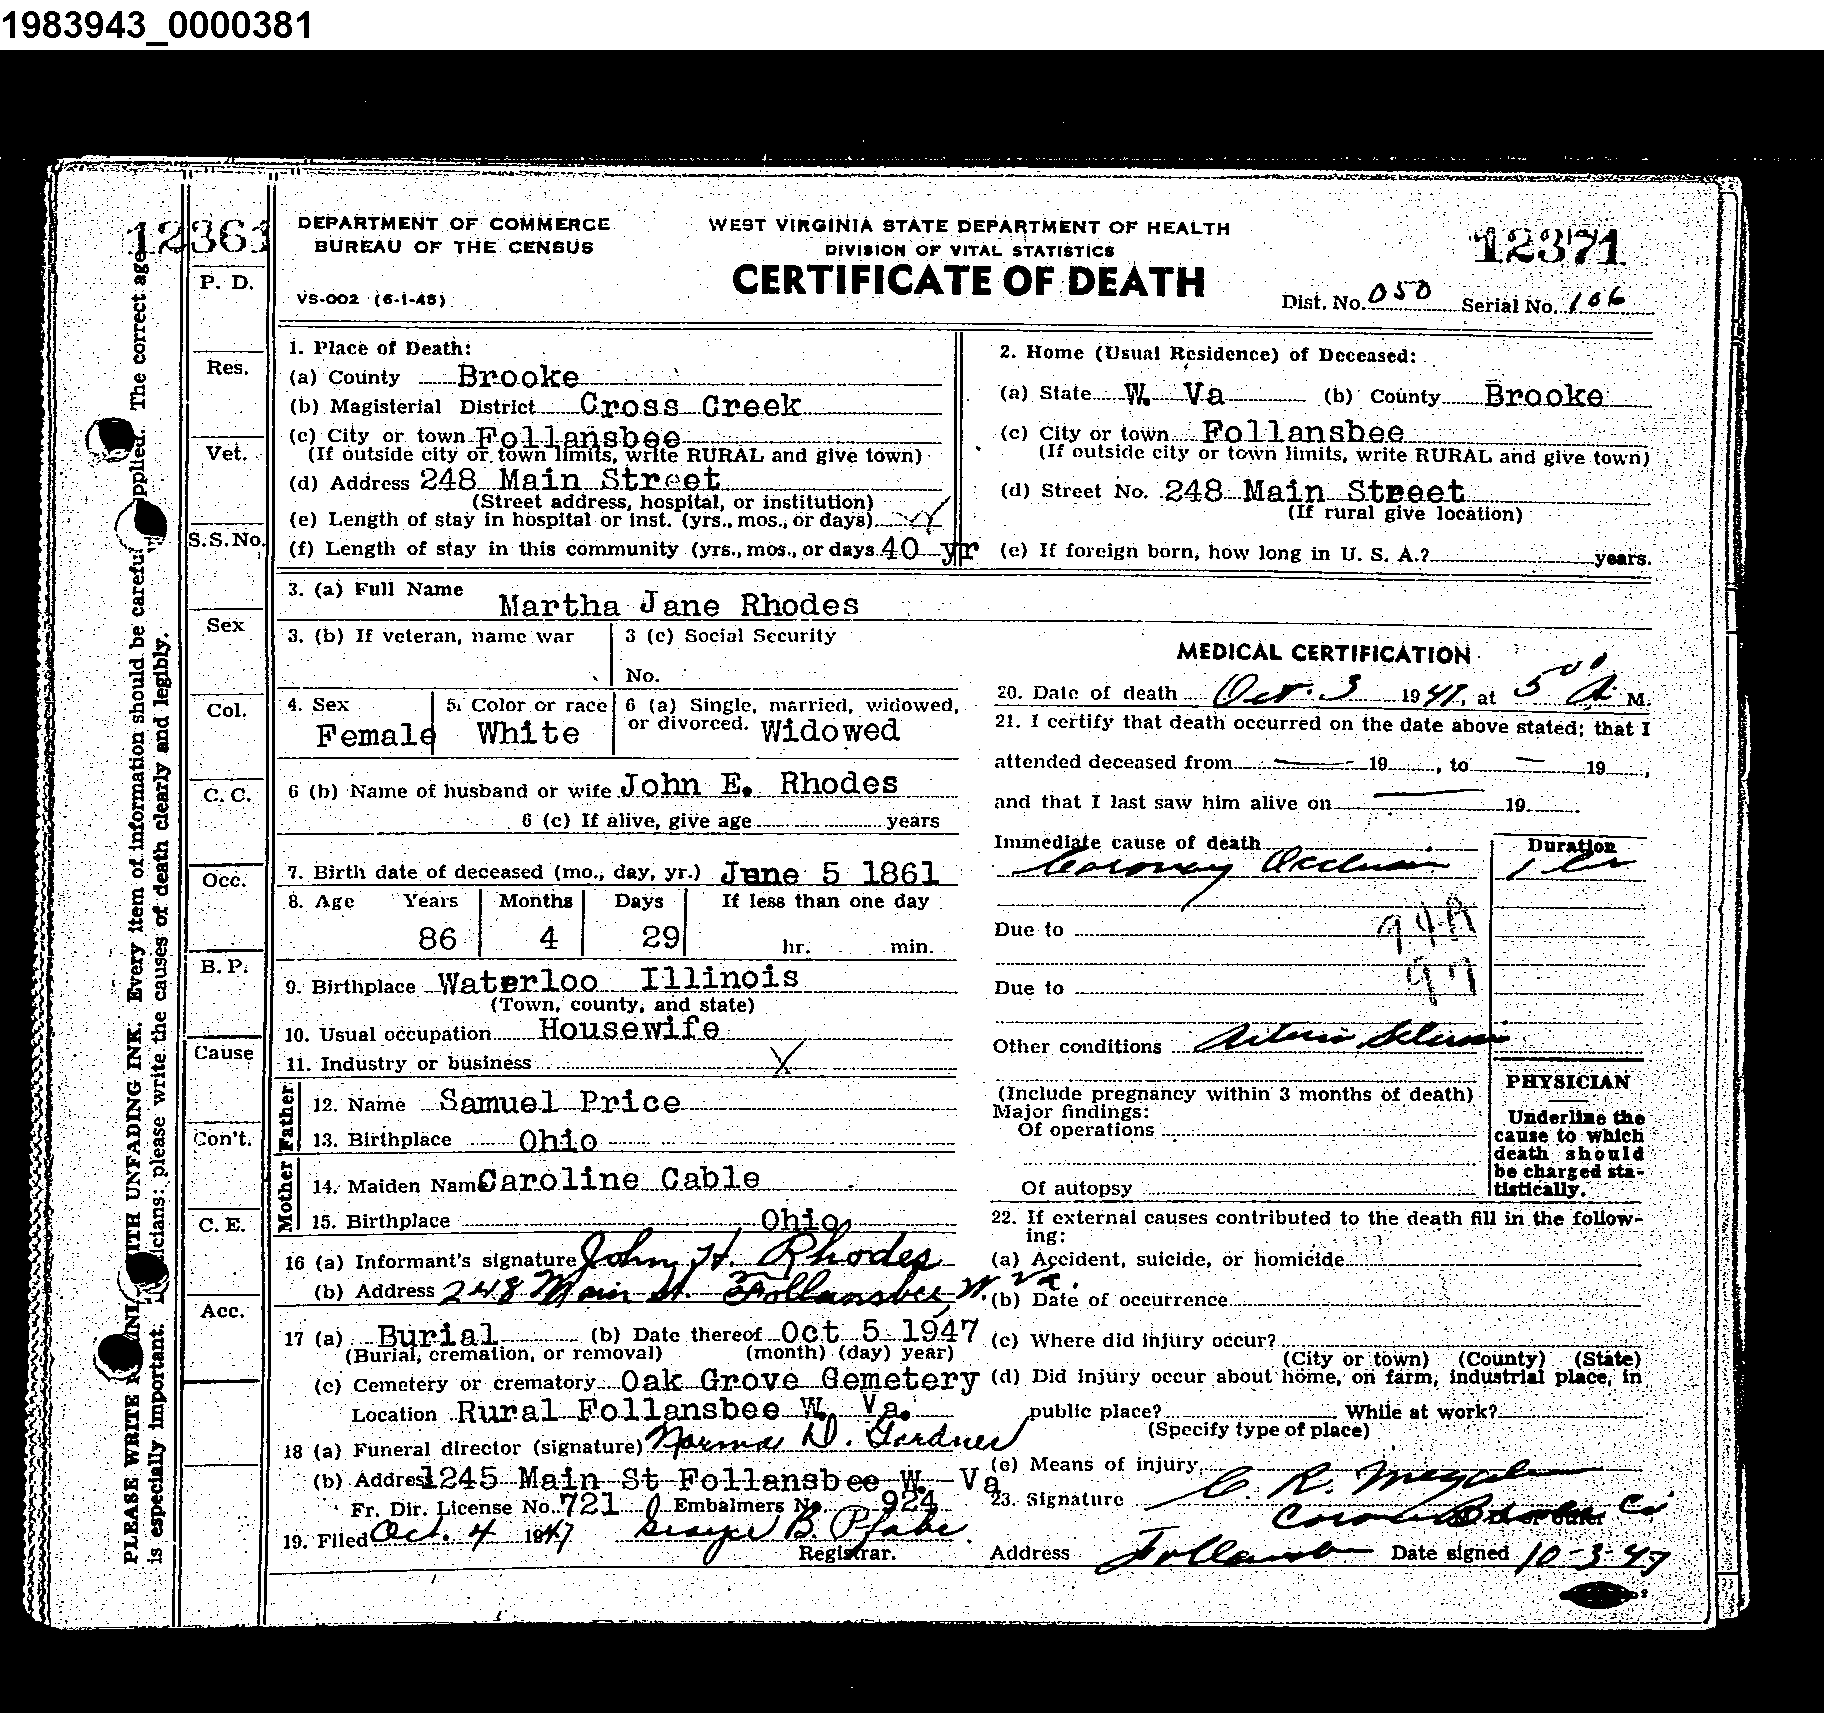 1983943_0000381
12361
DEPARTMENT OF COMMERCE
BUREAU OF THE CENSUS
VS-002 (6-1-45)
WEST VIRGINIA STATE DEPARTMENT OF HEALTH
DIVISION OF VITAL STATISTICS
CERTIFICATE OF DEATH
12371
Dist. No. 050 Serial No. 106
P. D.
Res.
Vet.
S.S. No.
Sex
Col.
C. C.
Occ.
B. P.
Cause
Con't.
C. E.
Acc.
PLEASE WRITE WITH UNFADING INK. Every item of information should be carefully supplied. The correct age
is especially important. Physicians: please write the causes of death clearly and legibly.
1. Place of Death:
(a) County Brooke
(b) Magisterial District Cross Creek
(c) City or town Follansbee
(If outside city or town limits, write RURAL and give town)
(d) Address 248 Main Street
(Street address, hospital, or institution)
(e) Length of stay in hospital or inst. (yrs., mos., or days)
(f) Length of stay in this community (yrs., mos., or days 40 yr
2. Home (Usual Residence) of Deceased:
(a) State W. Va (b) County Brooke
(c) City or town Follansbee
(If outside city or town limits, write RURAL and give town)
(d) Street No. 248 Main Street
(If rural give location)
(e) If foreign born, how long in U. S. A.? years.
3. (a) Full Name Martha Jane Rhodes
3. (b) If veteran, name war
3 (c) Social Security
No.
4. Sex Female
5. Color or race White
6 (a) Single, married, widowed,
or divorced. Widowed
6 (b) Name of husband or wife John E. Rhodes
6 (c) If alive, give age years
7. Birth date of deceased (mo., day, yr.) June 5 1861
8. Age Years Months Days If less than one day
86 4 29 hr. min.
9. Birthplace Waterloo Illinois
(Town, county, and state)
10. Usual occupation Housewife
11. Industry or business X
Father
12. Name Samuel Price
13. Birthplace Ohio
Mother
14. Maiden Name Caroline Cable
15. Birthplace Ohio
16 (a) Informant's signature John H. Rhodes
(b) Address 248 Main St. Follansbee, W. Va.
17 (a) Burial (b) Date thereof Oct 5 1947
(Burial, cremation, or removal) (month) (day) year)
(c) Cemetery or crematory Oak Grove Cemetery
Location Rural Follansbee W. Va.
18 (a) Funeral director (signature) Norma D. Gardner
(b) Address 1245 Main St Follansbee W. Va
Fr. Dir. License No. 721 Embalmers No. 924
19. Filed Oct. 4 1947 George B. Pfabe
Registrar.
MEDICAL CERTIFICATION
20. Date of death Oct. 3 1947, at 5 00 A. M.
21. I certify that death occurred on the date above stated; that I
attended deceased from — 19 , to — 19 ,
and that I last saw him alive on — 19 .
Immediate cause of death Duration
Coronary Occlusion 1 hr
Due to 94A
Due to 97
Other conditions Arterio Sclerosis
(Include pregnancy within 3 months of death)
Major findings:
Of operations
Of autopsy
PHYSICIAN
Underline the
cause to which
death should
be charged sta-
tistically.
22. If external causes contributed to the death fill in the follow-
ing:
(a) Accident, suicide, or homicide
(b) Date of occurrence
(c) Where did injury occur?
(City or town) (County) (State)
(d) Did injury occur about home, on farm, industrial place, in
public place? While at work?
(Specify type of place)
(e) Means of injury
23. Signature C. R.
Coroner Brooke Co
Address Follansbee Date signed 10-3-47